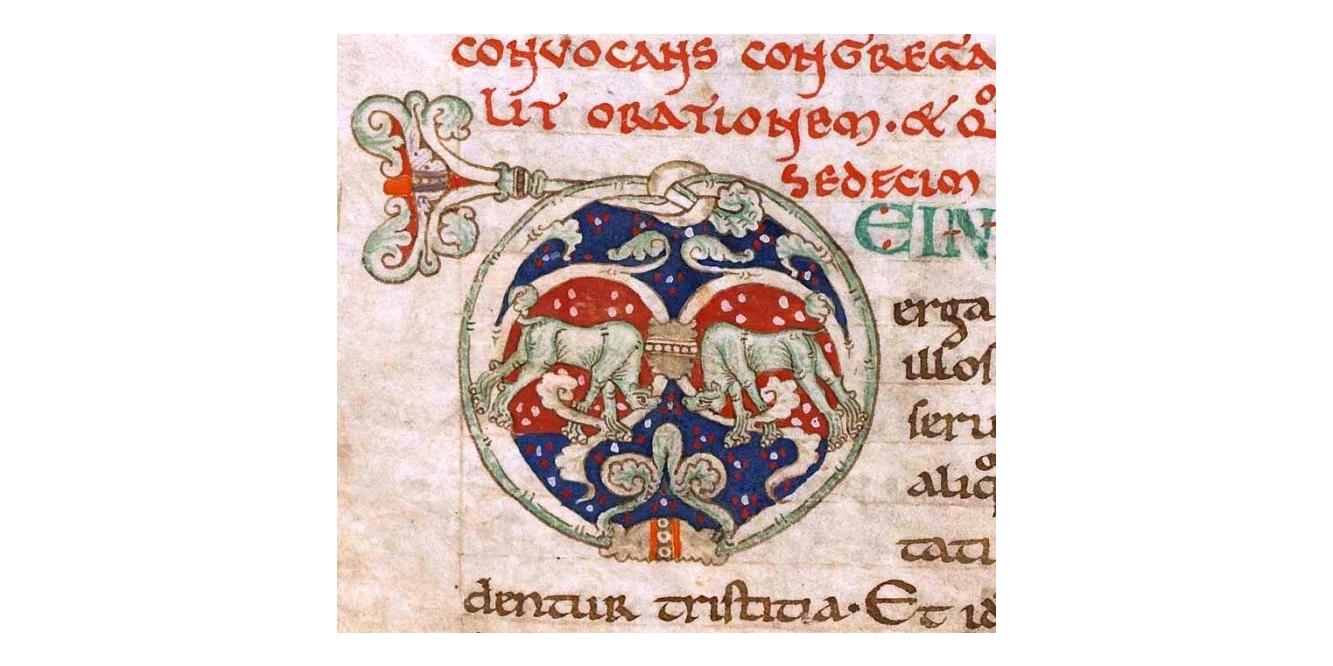 CONVOCANS CONGREGA
LIT ORATIONEM · & Qº
SEDECIM
D EIN
erga
illoſ
ſeru
aliqº
tati
dentur triſtitia · Et id